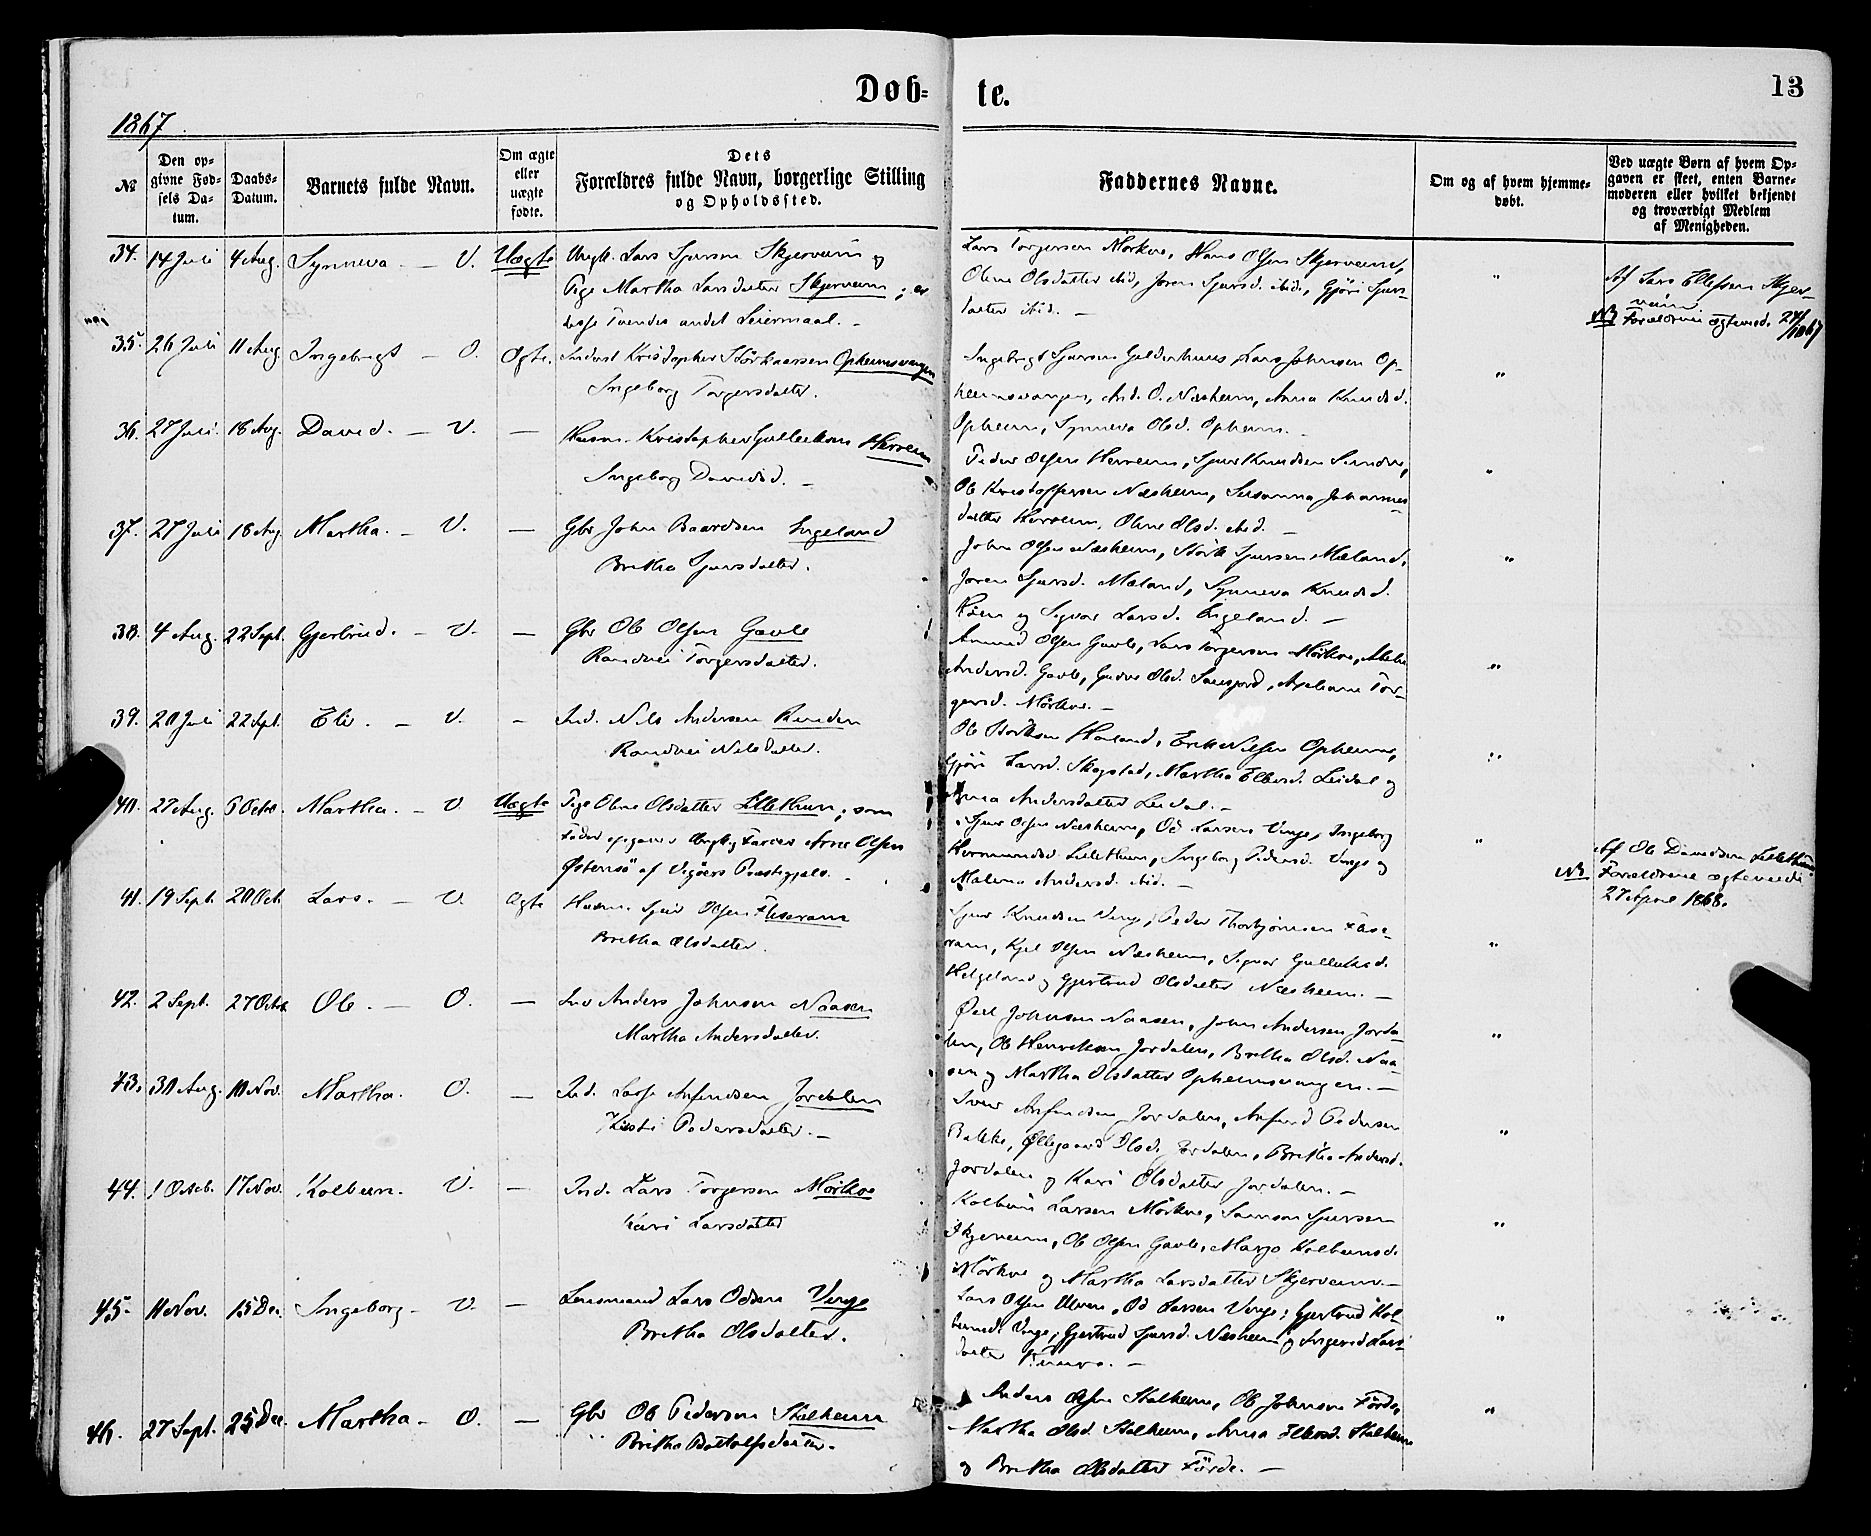 Døb= te.
13
1867.
№
Den opgivne Fødsels Datum.
Daabs-Datum.
Barnets fulde Navn.
Om ægte eller uægte fødte.
Dets
Forældres fulde Navn, borgerlige Stilling
og Opholdssted.
Faddernes Navne.
Om og af hvem hjemmedøbt.
Ved uægte Børn af hvem Opgaven er skeet, enten Barnemoderen eller hvilket bekjendt og troværdigt Medlem af Menigheden.
34. 14 Juli 4 Aug. Synneva. — V. Uægte Ungk. Lars Sjursen Skjerveim og
Pige Martha Larsdatter Skjerveim; er
begge Tvendes andet Leiermaal. —
Lars Torgersen Mørkve, Hans Olsen Skjerveim,
Oline Olsdatter ibid, Joren Sjursd. ibid., Gjøri Sjurs-
datter ibid. —
"
Af Lars Ellefsen Skjer-
veim
NB Forældrene ægteviede 24/ 1867
35. 26 Juli 11 Aug Ingebrigt — O. Ægte. Inderst Kristopher Størkaarsen Opheimsvangen
Ingeborg Torgersdatter.
Ingebrigt Sjursen Gulderhuus, Lars Johnsen Op-
heimsvangen, And. O. Næsheim, Anna Knudsd.
Opheim, Synneva Olsd. Opheim. —
"
36. 27 Juli. 18 Aug. David. — V. — Huusm. Kristopher Gulleiksen Herveim
Ingeborg Davidsd. —
Peder Olsen Herveim, Sjur Knudsen Sundve,
Ole Kristoffersen Næsheim, Susanna Johannes-
datter Herveim, Oline Olsd. ibid. —
"
37. 27 Juli 18 Aug Martha. — V. — Gbr John Baardsen Engeland
Britha Sjursdatter.
John Olsen Næsheim, Størk Sjursen Mæland,
Joren Sjursd. Mæland, Synneva Knudsd.
og Sigvor Larsd. Engeland. —
"
38. 4 Aug. 22 Sept. Gjertrud. — V. — Gbr Ole Olsen Gavle
Randvei Torgersdatter.
Amund Olsen Gavle, Lars Torgersen Mørkve,
Andersd. Gavle, Olsd. Tor-
gersd. Mørkve. —
"
39. 20 Juli 22 Sept. Eli. — V. — Ind. Nils Andersen Rinden
Randvei Nilsdatter.
Ole Størksen Haaland, Erik Nilsen Opheim,
Gjøri Larsd. Skogstad, Martha Ellevsd. Leidal og
Anna Andersdatter Leidal. —
"
40. 27 Aug. 6 Octb. Martha. — V Uægte Pige Oline Olsdatter Lillethun; som
Fader opgives Ungk. Farver Arne Olsen
Østensø af Vigøers Præstegjeld. —
Sjur Olsen Næsheim, Od Larsen Vinge, Ingeborg
Hermundsd Lillethun, Ingeborg Pedersd. Vinge og
Malena Andersd. ibid. —
"
Af Ole Davidsen Lillethun
NB Forældrene ægteviede
27 April 1868.
41. 19 Sept. 20 Oct. Lars. — V. Ægte Huusm. Sjur Olsen Fliseram
Britha Olsdatter.
Sjur Knudsen Vinge, Peder Thorbjørnsen Flise-
ram, Kjel Olsen Næsheim, Sigvor Gulleiksd.
Helgeland og Gjertrud Olsdatter Næsheim. —
"
42. 2 Sept. 27 Octb. Ole. — O. — Ind Anders Johnsen Naasen
Martha Andersdatter.
Johnsen Naasen, John Andersen Jorda-
len, Ole Henriksen Jordalen, Britha Olsd. Naa-
sen og Martha Olsdatter Opheimsvangen. —
"
43. 30 Aug. 10 Nov. Martha. O. — Ind. Lasse Anfindsen Jordalen
Kristi Pedersdatter. —
Iver Anfindsen Jordalen, Anfind Pedersen
Bakke, Øllegaard Olsd. Jordalen, Britha Andersd.
Jordalen og Kari Olsdatter Jordalen. —
"
44. 1 Octob. 17 Nov. Kolbein. V. — Ind. Lars Torgersen Mørkve
Kari Larsdatter
Kolbein Larsen Mørkve, Samson Sjursen
Skjerveim, Ole Olsen Gavle, Margo Kolbeinsd.
Mørkve og Martha Larsdatter Skjerveim. —
"
45. 11 Nov. 15 Dec. Ingeborg — V. — Lensmand Lars Odsen Vinge
Britha Olsdatter.
Lars Olsen Ulven, Od Larsen Vinge, Gjertrud Kol-
beinsd. Vinge, Gjertrud Sjursd. Næsheim og Ingerid Lars-
datter
"
46. 27 Sept. 25 Dec. Martha — O. — Gbr Ole Pedersen Stalheim
Britha Botolfsdatter.
Anders Olsen Stalheim, Ole Johnsen Førde,
Martha Olsd. Stalheim, Anna Ellevsd. Stalheim
og Britha Olsdatter Førde. —
"